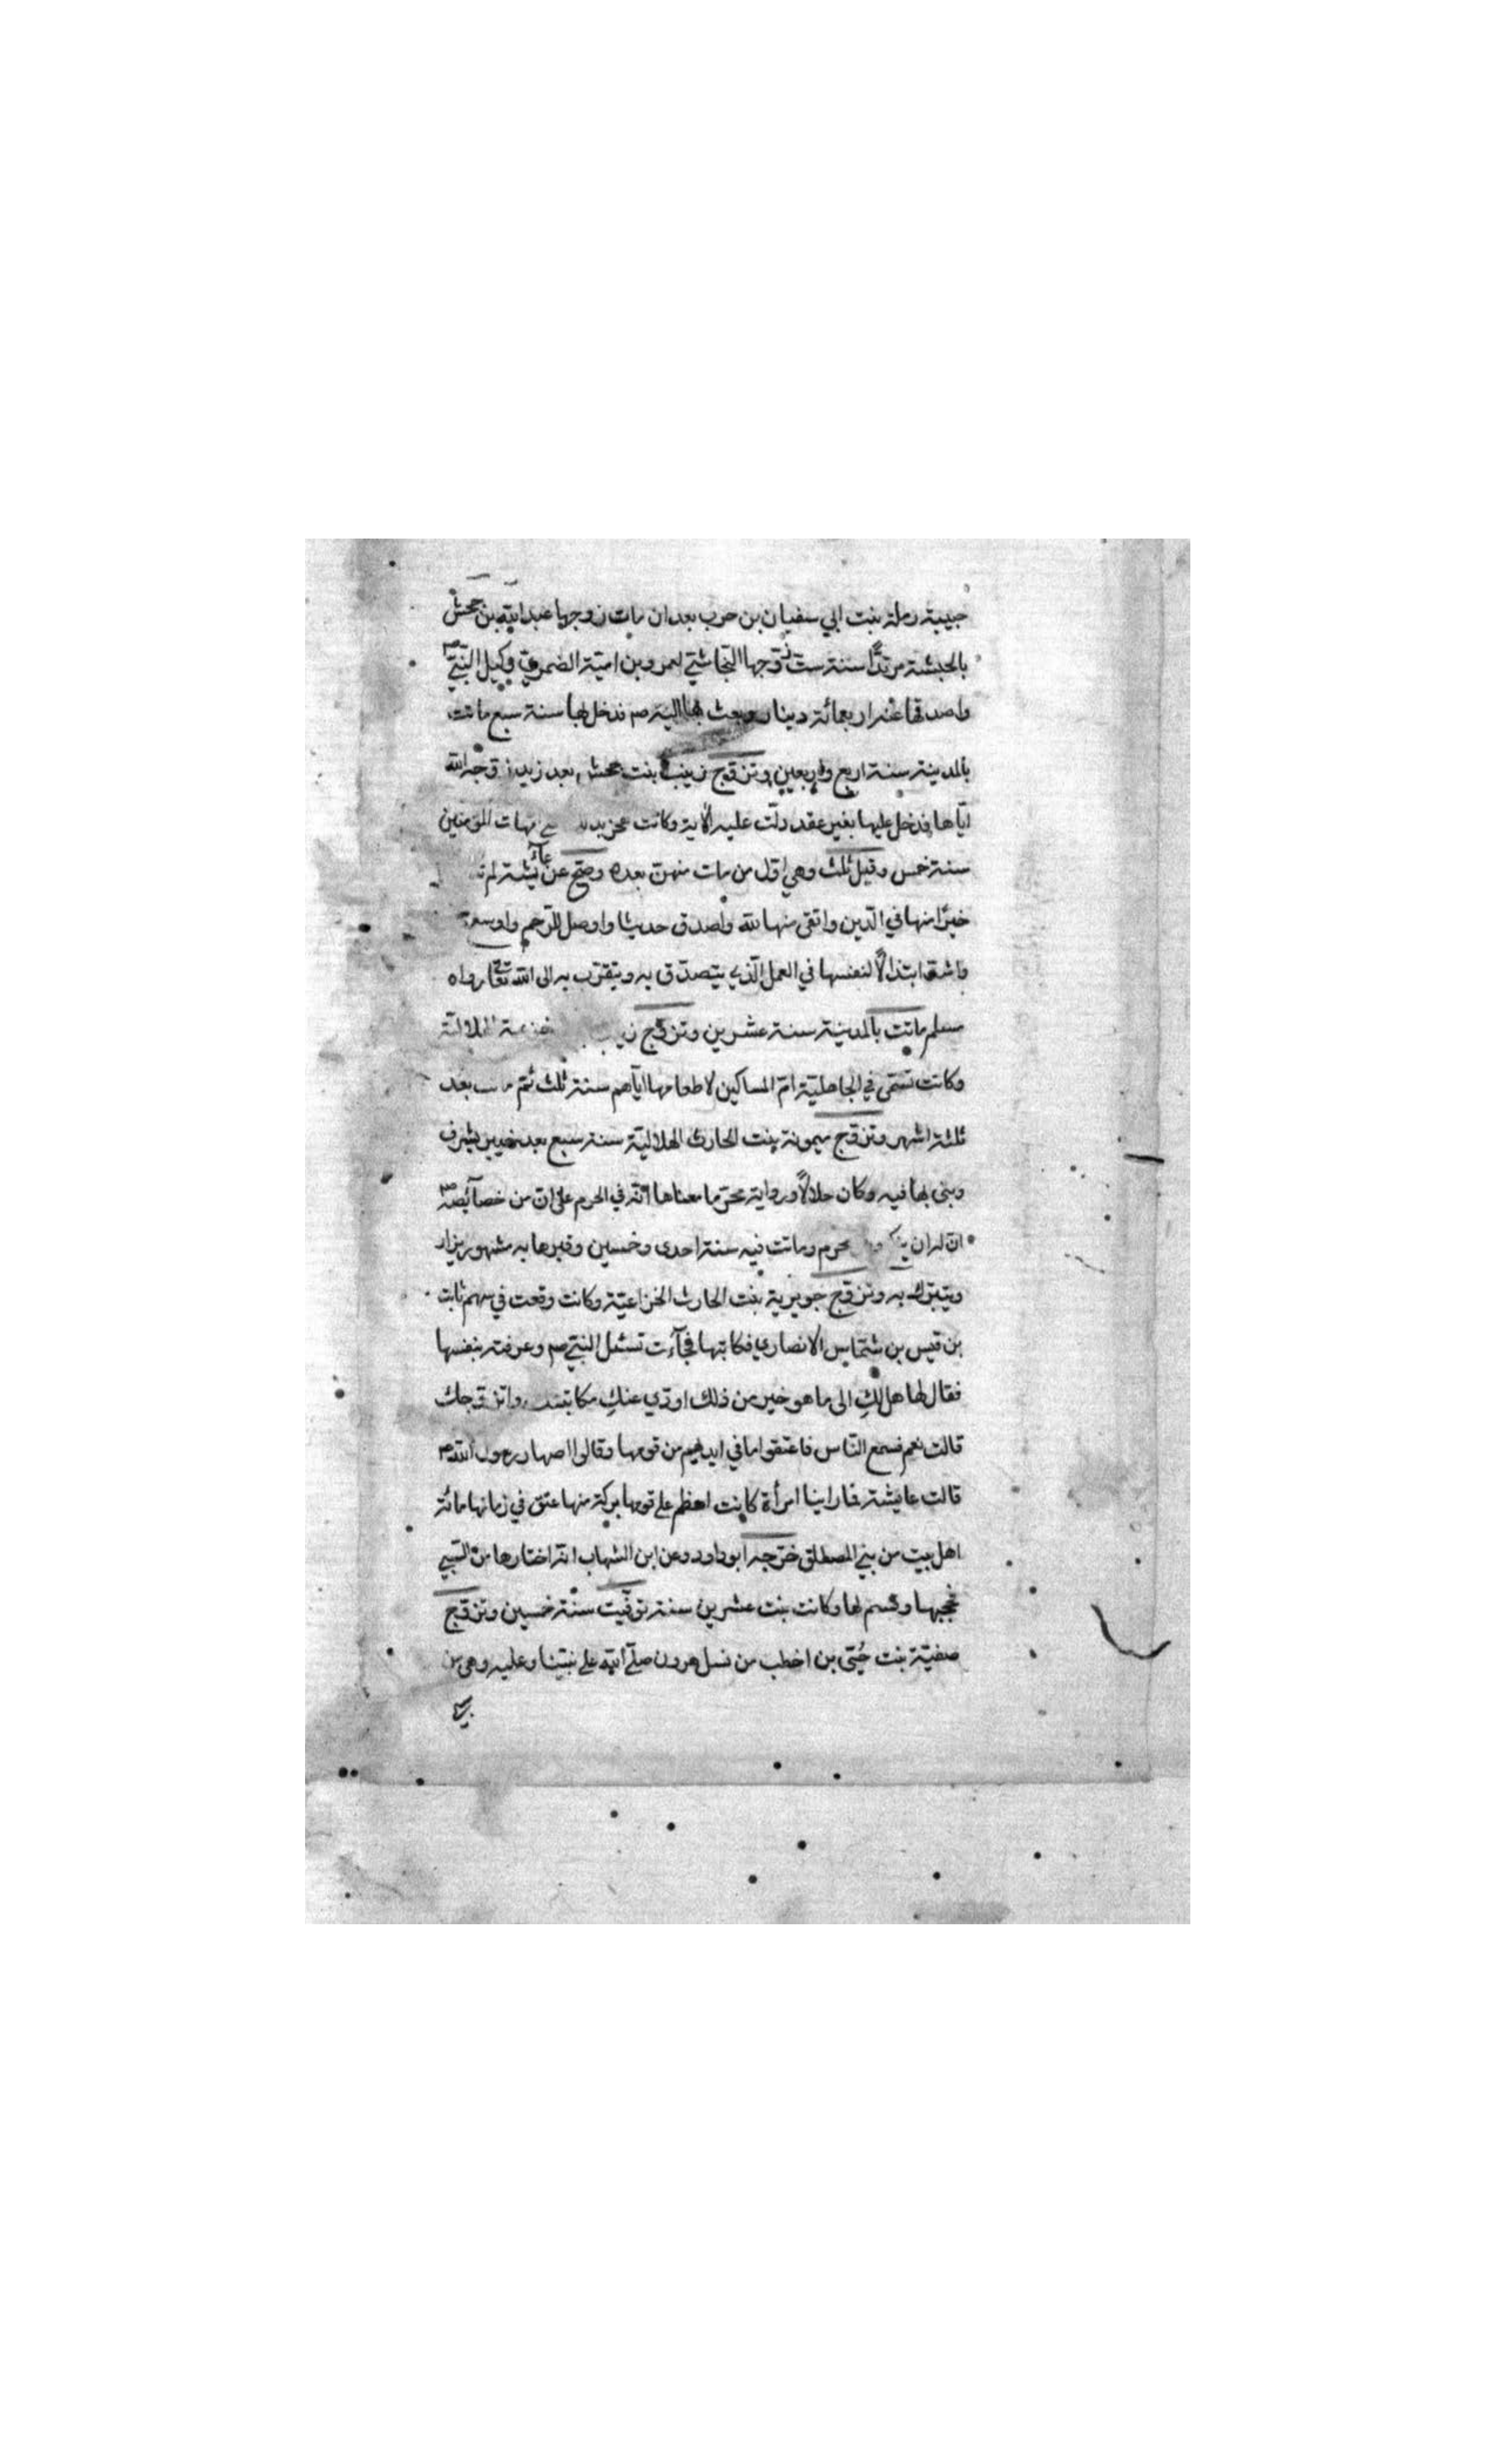 حبيبة رملة بنت ابي سفيان بن حرب بعد ان مات زوجها عبد الله بن جحش
بالحبشة مرتدًّا سنة ست زوجها النجاشي لعمرو بن امية الضمري وكيل النبي ص
واصدقها عنه اربعمائة دينار وبعث بها اليه ص فدخل بها سنة سبع ماتت
بالمدينة سنة اربع واربعين وتزوج زينب بنت جحش بعد زيد زوجه الله
اياها فدخل عليها بغير عقد دلت عليه الآية وكانت امهات المؤمنين
سنة خمس وقيل ثلث وهي اول من مات منهن بعده وصح عن عائشة لم
خيرًا منها في الدين واتقى منها لله واصدق حديثا واوصل للرحم واوسع
واشد ابتذالًا لنفسها في العمل الذي يتصدق به ويتقرب به الى الله تعالى رواه
مسلم ماتت بالمدينة سنة عشرين وتزوج خزيمة الهلالية
وكانت تسمى في الجاهلية ام المساكين لاطعامها اياهم سنة ثلث ثم بعد
ثلثة اشهر وتزوج ميمونة بنت الحارث الهلالية سنة سبع بعد خيبر بسرف
وبنى بها فيه وكان حلالًا ورواية محرما معناها انه في الحرم على ان من خصائصه ص
ان له ان محرم وماتت فيه سنة احدى وخمسين وقبرها به مشهور يزار
ويتبرك به وتزوج جويرية بنت الحارث الخزاعية وكانت وقعت في سهم ثابت
بن قيس بن شماس الانصاري فكاتبها فجاءت تسئل النبي ص وعرفته بنفسها
فقال لها هل لكِ الى ما هو خير من ذلك اودي عنكِ مكاتبتك واتزوجك
قالت نعم فسمع الناس فاعتقوا ما في ايديهم من قومها وقالوا اصهار رسول الله ص
قالت عايشة فما راينا امرأة كانت اعظم على قومها بركة منها عتق في زمانها مائة
اهل بيت من بني المصطلق خرجه ابو داود وعن ابن الشهاب انه اختارها من السبي
فحجبها وقسم لها وكانت بنت عشرين سنة توفيت سنة خمسين وتزوج
صفية بنت حُيَيّ بن اخطب من نسل هرون صلى الله على نبينا وعليه وهي من